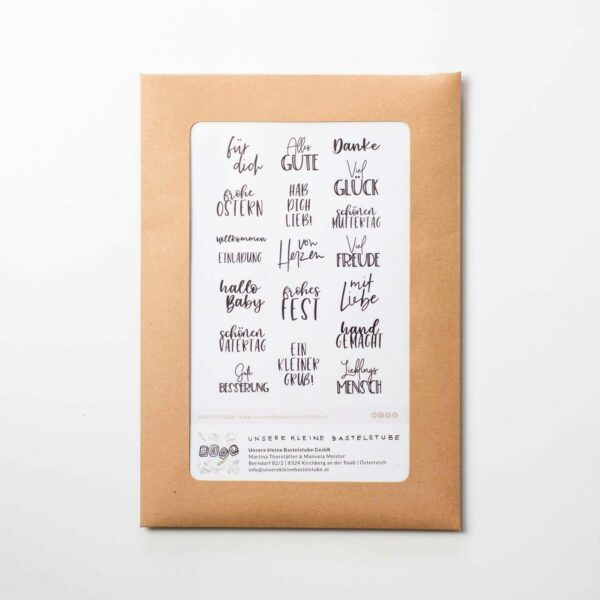 für
dich
Alles
GUTE
Danke
Viel
GLÜCK
frohe
OSTERN
HAB
DICH
LIEB!
schönen
MUTTERTAG
willkommen
EINLADUNG
von
Herzen
Viel
FREUDE
hallo
Baby
frohes
FEST
mit
Liebe
schönen
VATERTAG
EIN
KLEINER
GRUß!
hand
GEMACHT
Gute
BESSERUNG
Lieblings
MENSCH
BASTELIDEEN: www.unserekleinebastelstube.at
UNSERE KLEINE BASTELSTUBE
Unsere kleine Bastelstube GesbR
Martina Thorstätter & Manuela Meister
Berndorf 92/2 | 8324 Kirchberg an der Raab | Österreich
info@unserekleinebastelstube.at